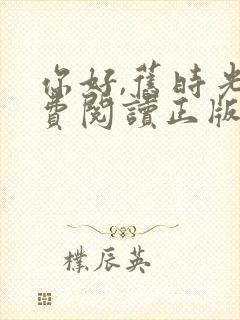 你好,舊時光
費閱讀正版
樸辰英